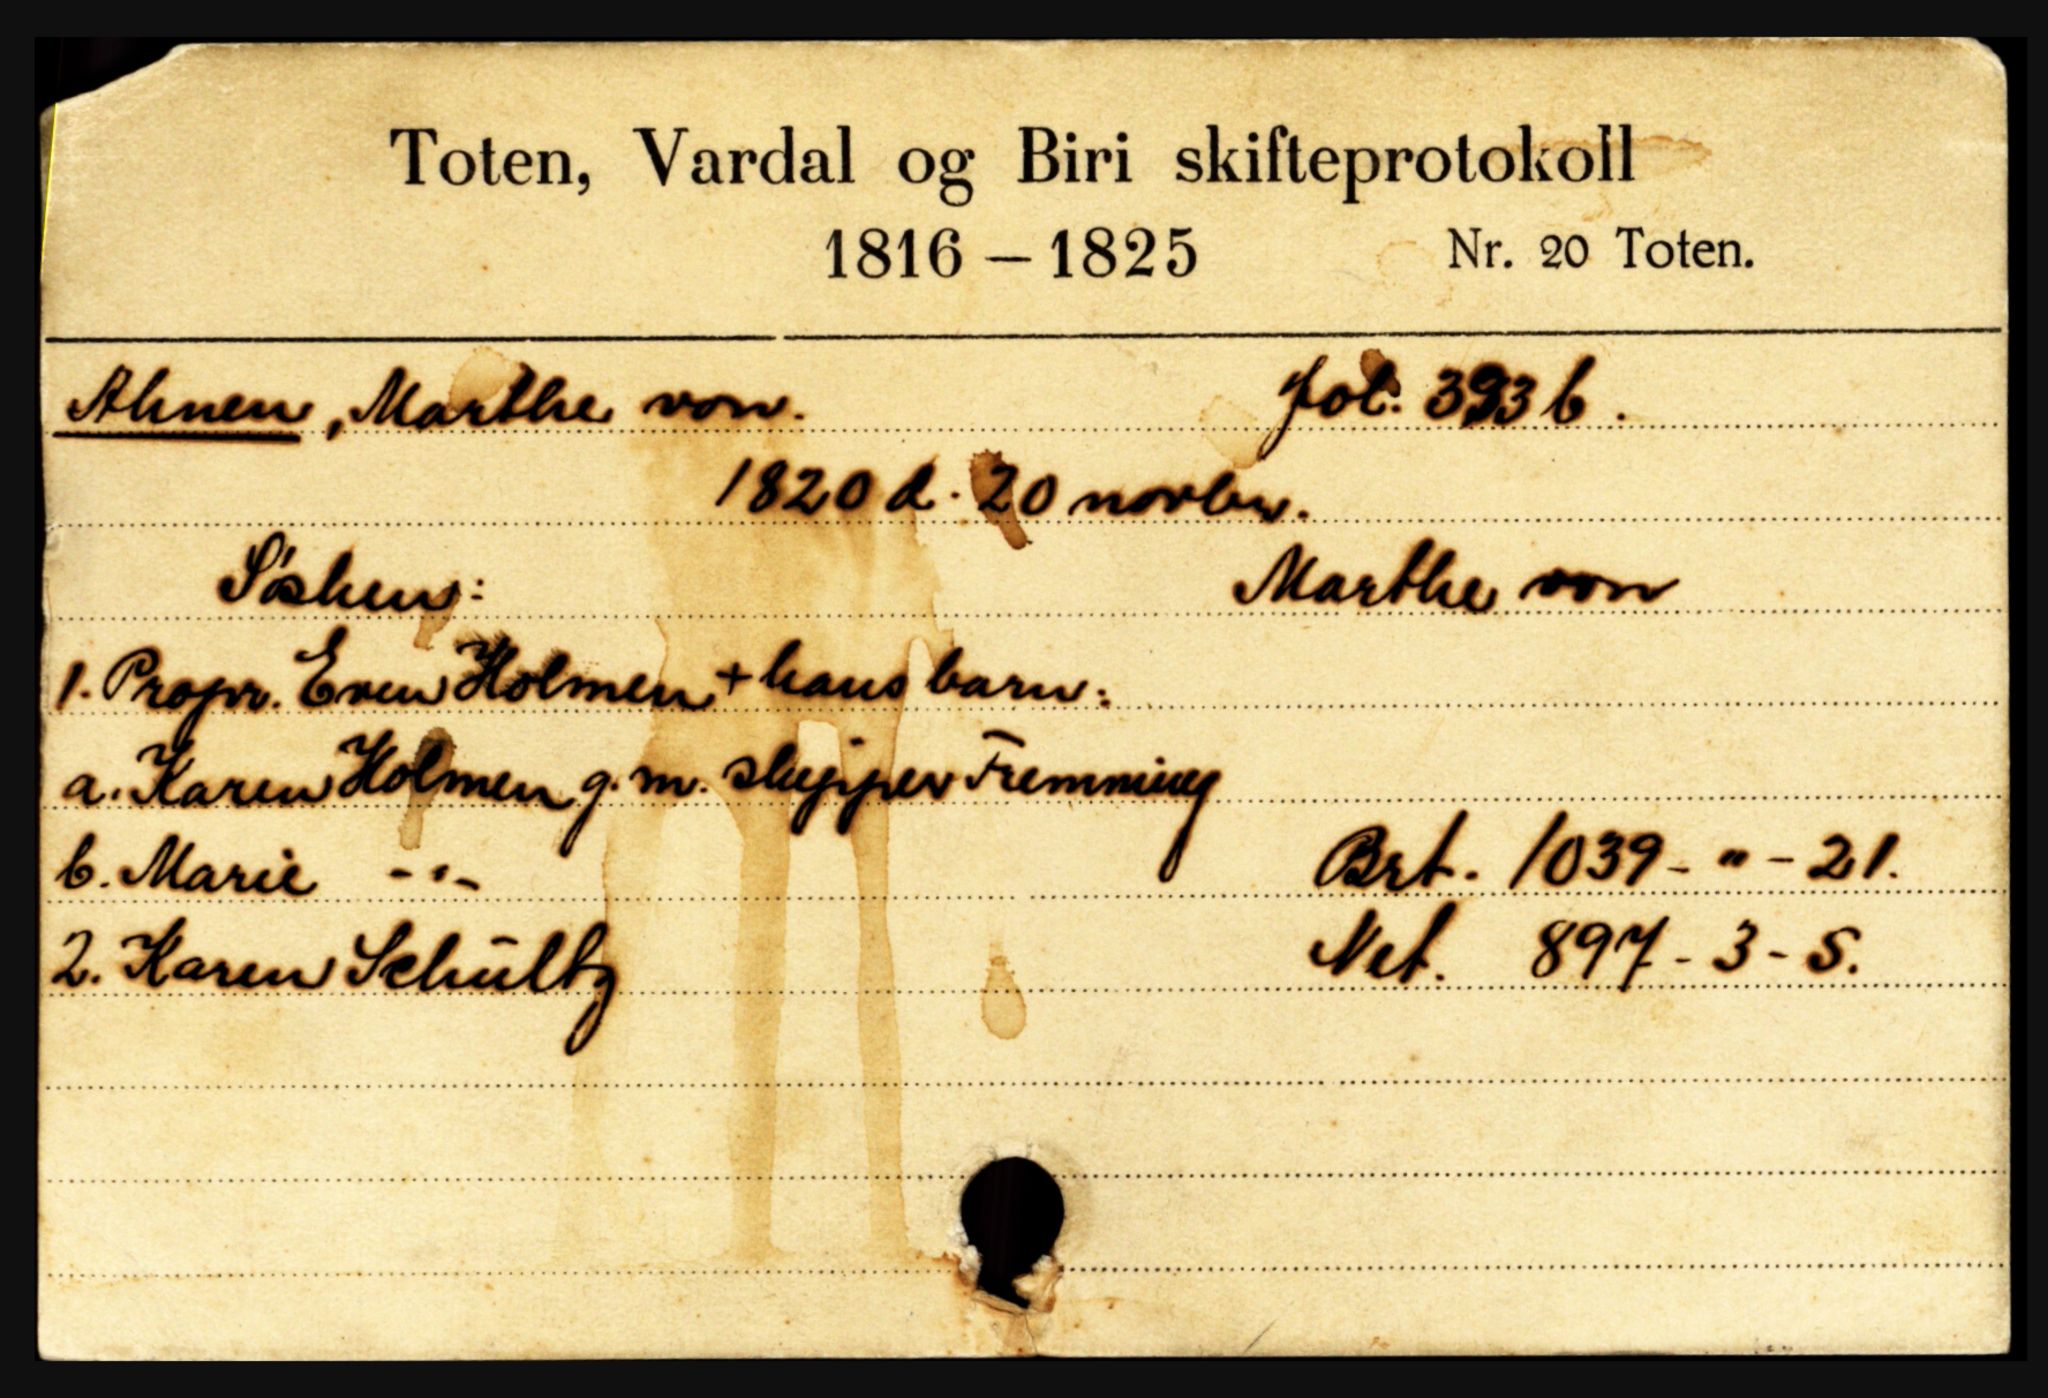 Toten, Vardal og Biri skifteprotokoll
1816 – 1825 Nr. 20 Toten.
Ahnen, Marthe von. fol. 393 b.
1820 d. 20 novbr.
Søsken: Marthe von
1. Propr. Even Holmen + hans barn:
a. Karen Holmen g. m. skipper Fremming
b. Marie -"- Brt. 1039 - " - 21.
2. Karen Schultz Net. 897 - 3 - 5.